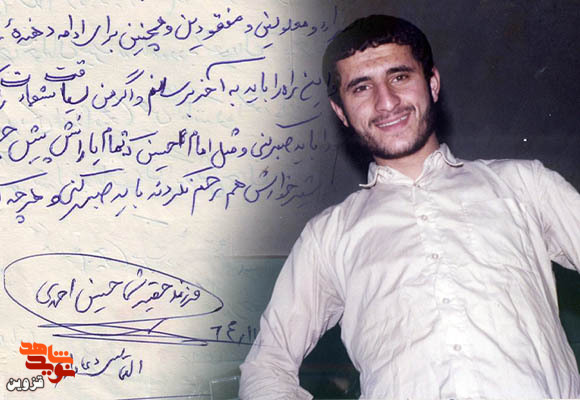 و معلولین و مفقودین و همچنین برای ادامه دهندهٔ
این راه را باید به آخر برسانم و اگر من لیاقت شهادت
باید صبر کنی و مثل امام حسین که تمام یارانش پیش
خوارش هم رحم نکردند باید صبر کنی و هر چه
فرزند حقیر شما حسین احمدی
التماس دعا
نوید شاهد
قزوین